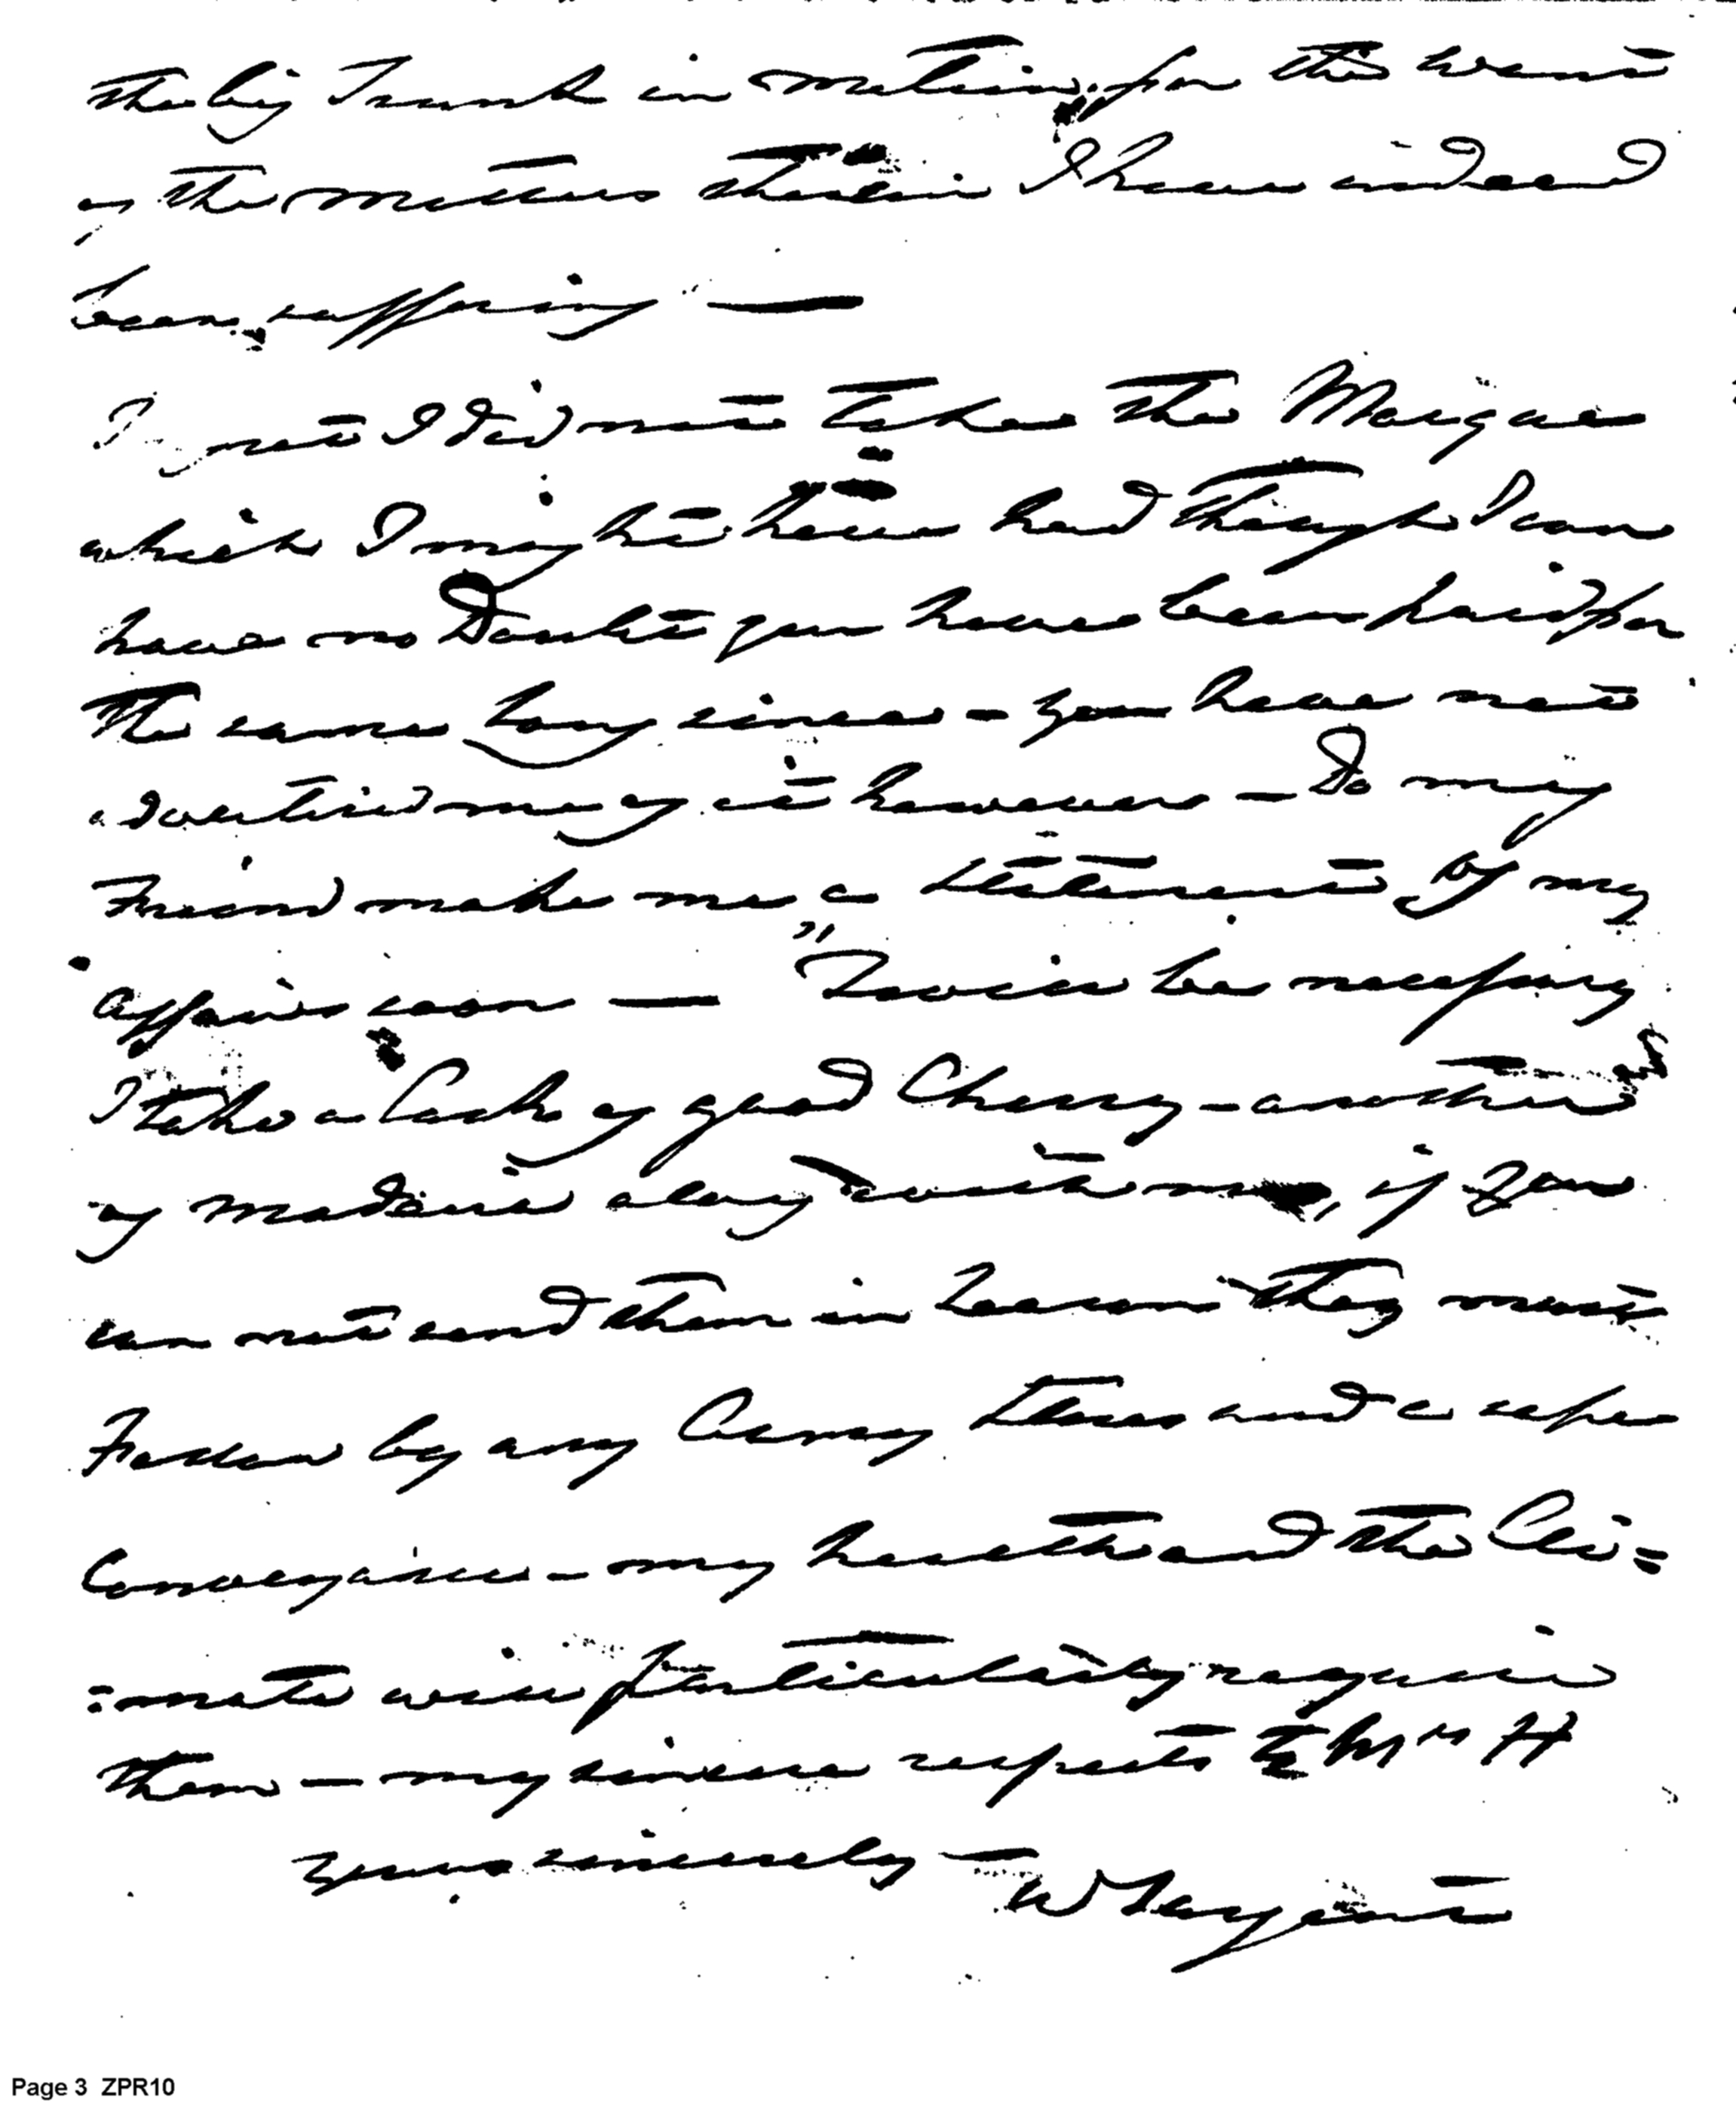 the big Trunk in motion, for the want
of the matters therein I have indeed
been suffering —
I note I did not take the Marquee
which I may hit have had though I can
have no Doubt you have been paid for
the same long since - you have not
advertised me of it however — Do my
Friend make me a statement of my
affairs soon — Twill be necessary
I take a Cask of good Cherry - another
of madeira along with me, if you
can not send them in Season they must
Follow by any Army Stores and a safe
Conveyance - my health and the Cli=
=mate will particularly require
them — my sincere respects to Mrs H
yours sincerely
W Sargent
Page 3 ZPR10